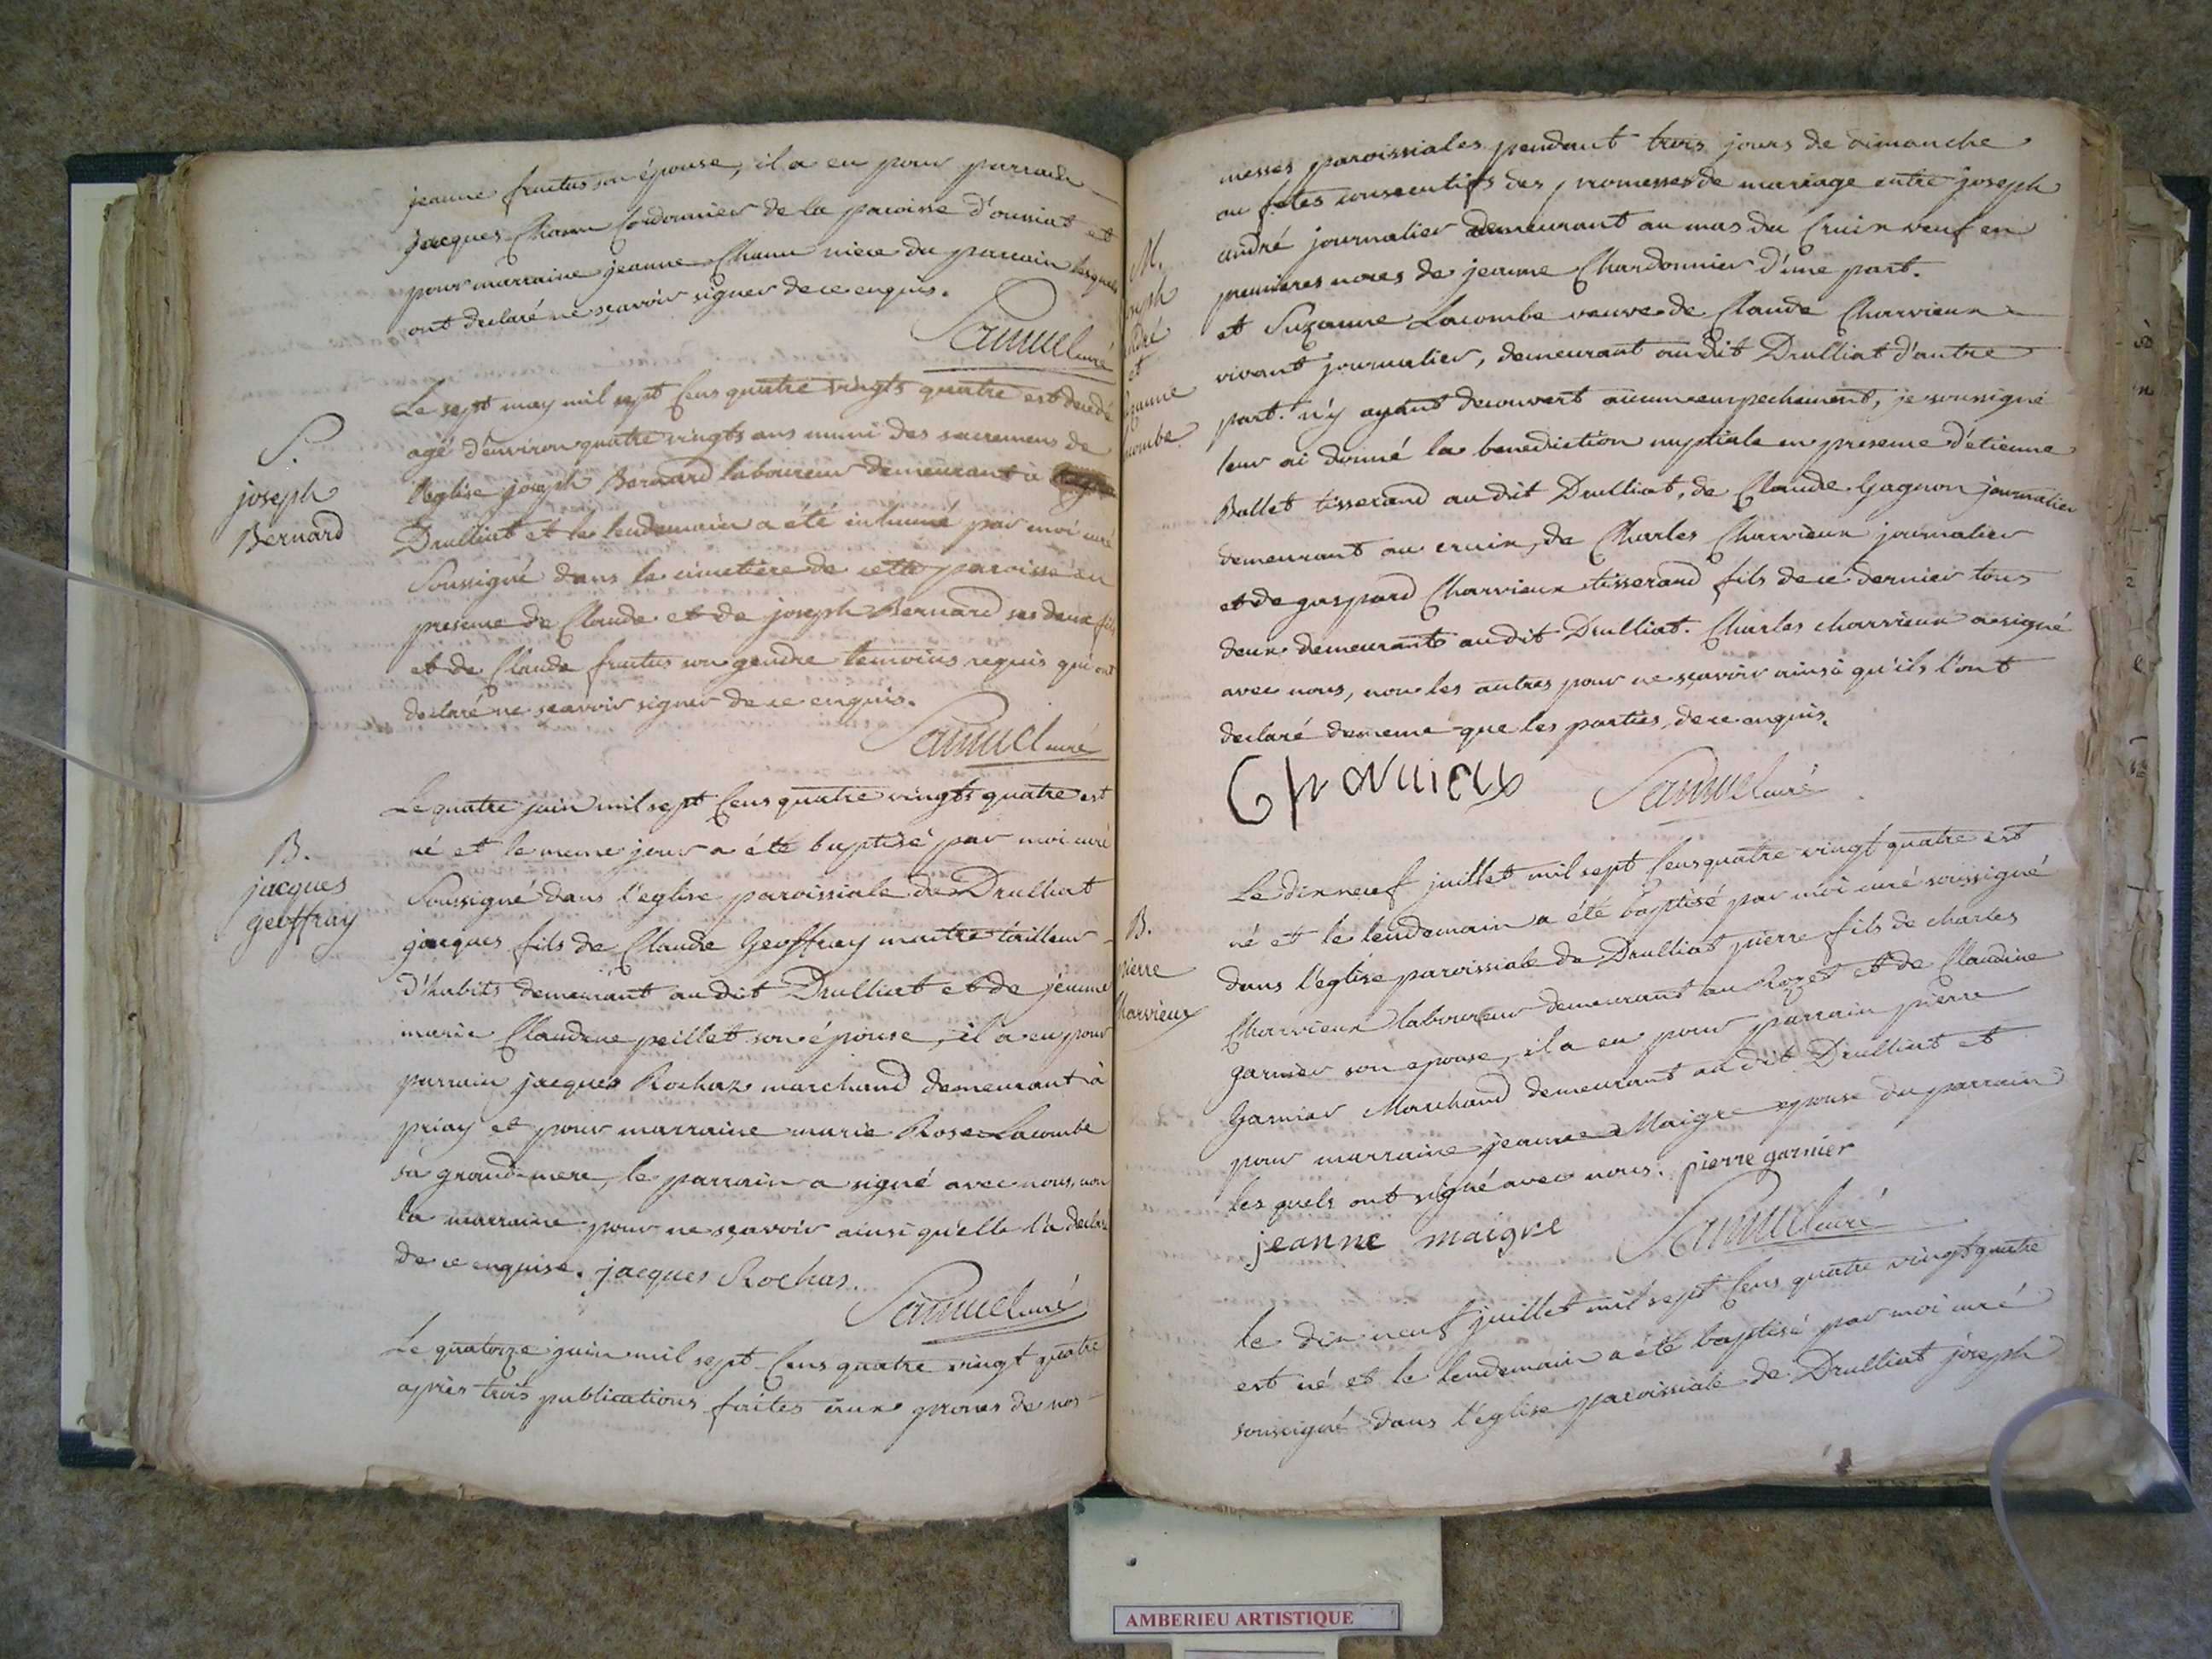 jeanne fructus son épouse, il a eu pour parrain
jacques Chanu Cordonnier de la paroisse d'oussiat et
pour marraine jeanne Chanu niece du parrain lesquels
ont declaré ne sçavoir signer de ce enquis.
Samuel curé
S.
joseph
Bernard
Le sept may mil sept Cens quatre vingts quatre est decedé
agé d'environ quatre vingts ans muni des sacremens de
l'eglise joseph Bernard laboureur demeurant à
Drulliat et le lendemain a été inhumé par moi curé
Soussigné dans le cimetière de cette paroisse en
presence de Claude et de joseph Bernard ses deux fils
et de Claude fructus son gendre temoins requis qui ont
declaré ne sçavoir signer de ce enquis.
Samuel curé
B.
jacques
geoffray
Le quatre juin mil sept Cens quatre vingts quatre est
né et le meme jour a été baptisé par moi curé
Soussigné dans l'eglise paroissiale de Drulliat
jacques fils de Claude Geoffray maitre tailleur
d'habits demeurant audit Drulliat et de jeanne
marie Claudine peillet son épouse, il a eu pour
parrain jacques Rochaz marchand demeurant à
priay et pour marraine marie Rose Lacombe
sa grand-mere, le parrain a signé avec nous, non
la marraine pour ne sçavoir ainsi qu'elle l'a declaré
de ce enquise. jacques Rochas.
Samuel curé
Le quatorze juin mil sept Cens quatre vingt quatre
après trois publications faites aux prones de nos
messes paroissiales pendant trois jours de dimanche
ou fetes consecutifs des promesses de mariage entre joseph
andré journalier demeurant au mas du Cruix veuf en
premieres noces de jeanne Chardonnier d'une part.
et Suzanne Lacombe veuve de Claude Charvieux
vivant journalier, demeurant audit Drulliat d'autre
part. n'y ayant decouvert aucun empechement, je soussigné
leur ai donné la benediction nuptiale en presence d'etienne
Ballet tisserand audit Drulliat, de Claude Gagnon journalier
demeurant au cruix, de Charles Charvieux journalier
et de gaspard Charvieux tisserand fils de ce dernier tous
deux demeurants audit Drulliat. Charles charvieux a signé
avec nous, non les autres pour ne sçavoir ainsi qu'ils l'ont
declaré de meme que les parties, de ce enquis.
M.
et
Samuel curé
B.
pierre
Charvieux
Le dix neuf juillet mil sept Cens quatre vingt quatre est
né et le lendemain a été baptisé par moi curé soussigné
dans l'eglise paroissiale de Drulliat pierre fils de charles
Charvieux laboureur demeurant au Rozet et de Claudine
garnier son epouse, il a eu pour parrain pierre
Garnier Marchand demeurant audit Drulliat et
pour marraine jeanne Maigre epouse du parrain
les quels ont signé avec nous. pierre garnier
jeanne maigre Samuel curé
le dix neuf juillet mil sept Cens quatre vingt quatre
est né et le lendemain a été baptisé par moi curé
soussigné dans l'eglise paroissiale de Drulliat joseph
AMBERIEU ARTISTIQUE